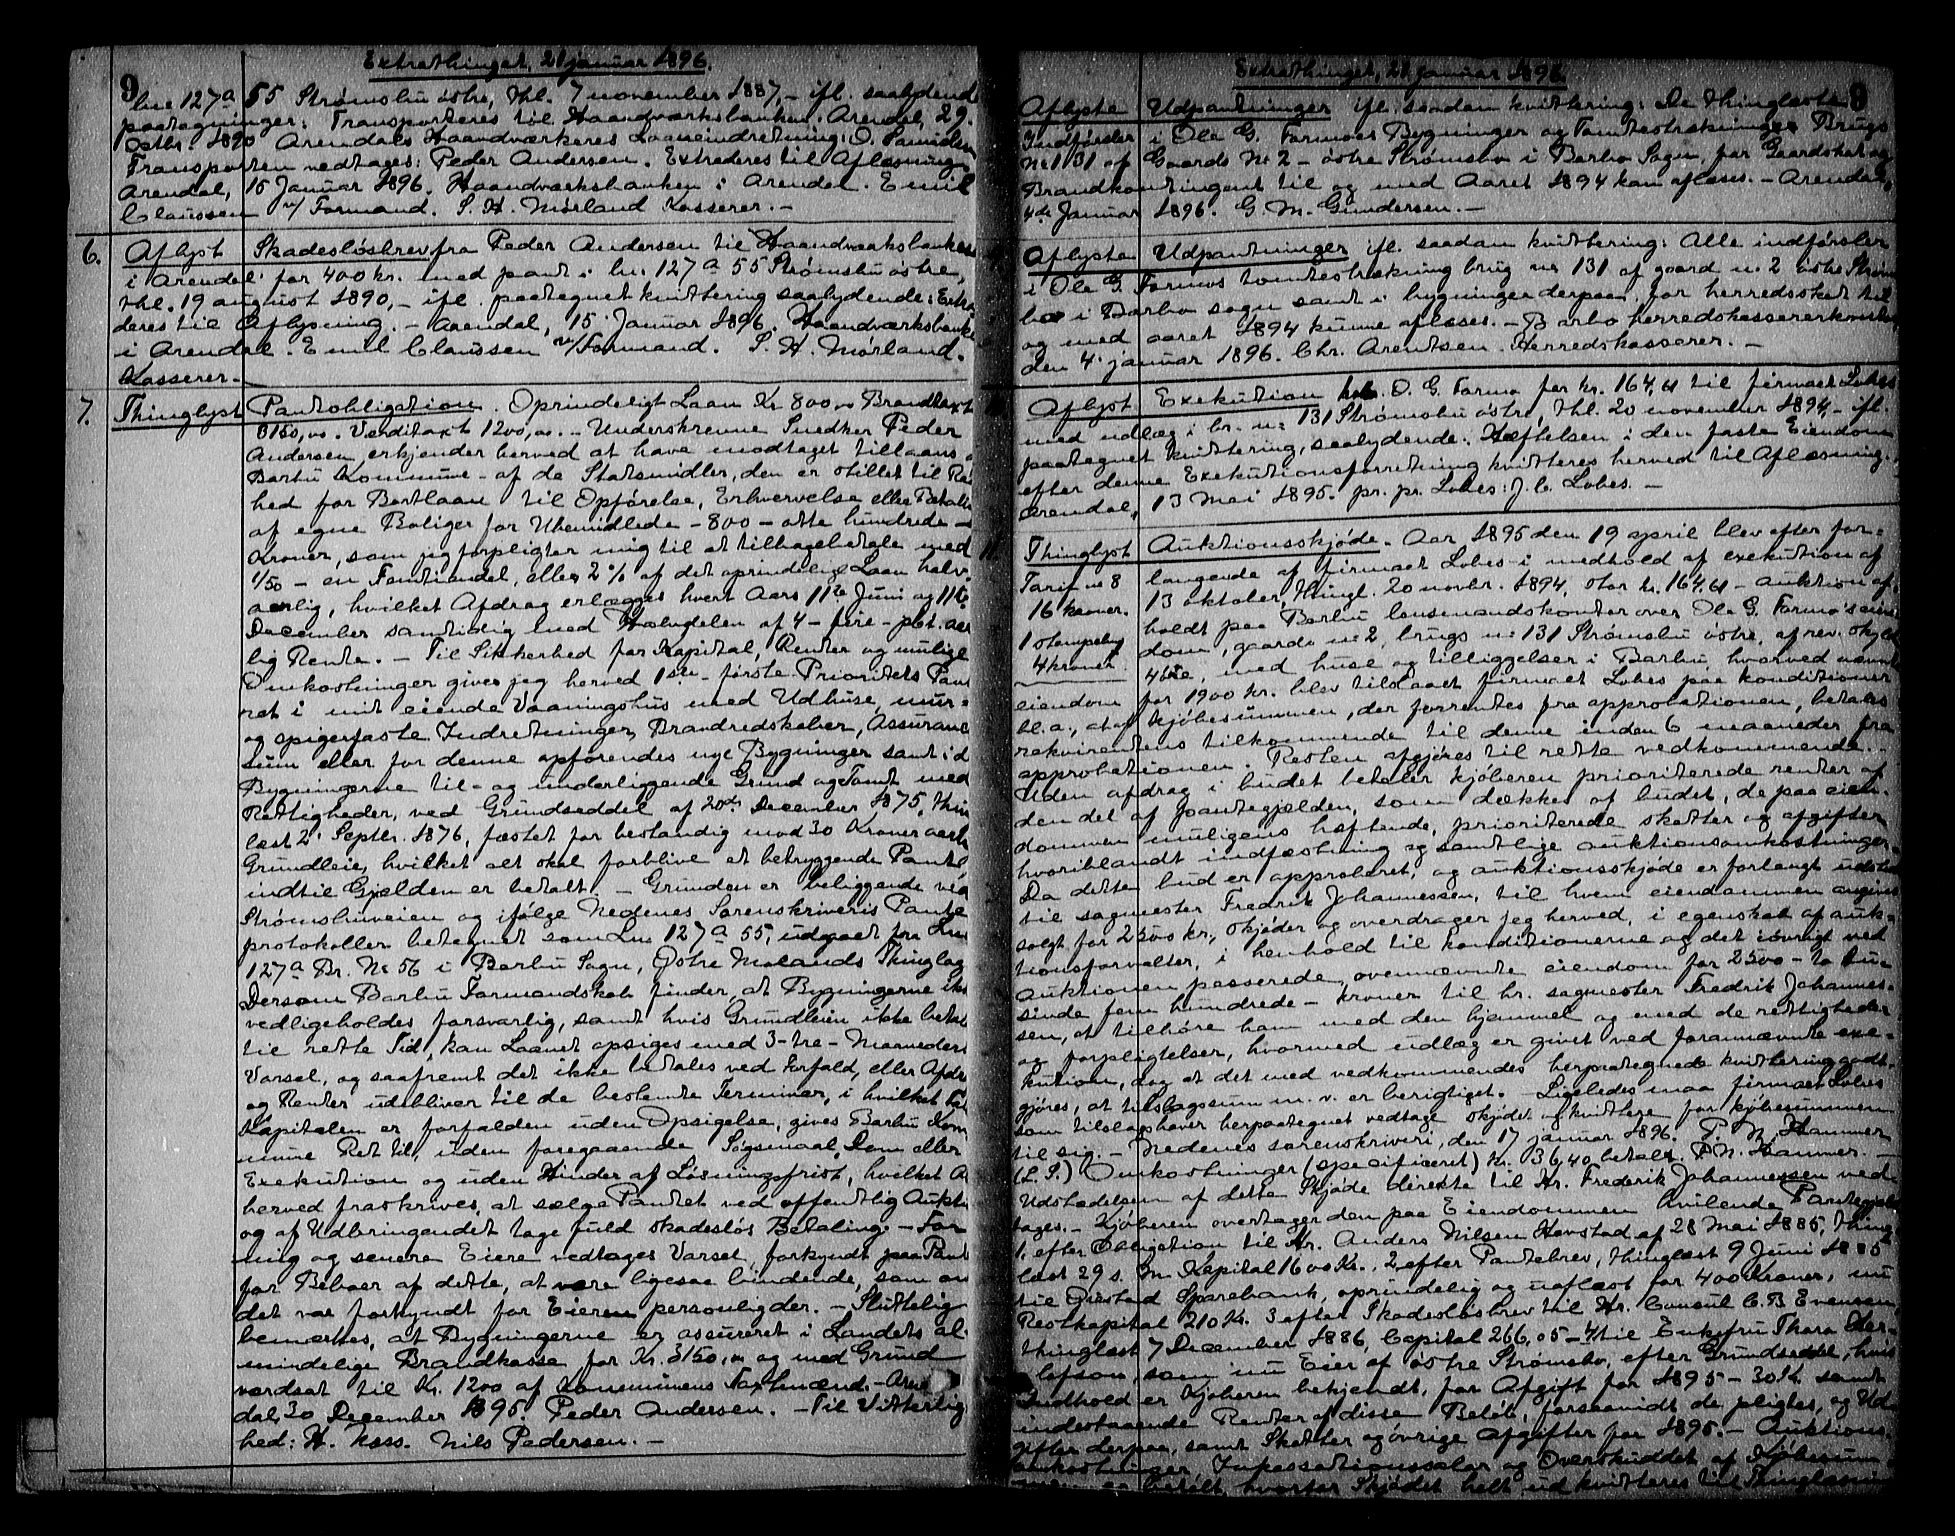 Extrathinget, 21 januar 1896.
9
lne 127a 55 Strømsbu østre, thl. 7 november 1887, - ifl. saalydende
paategninger: Transporteres til Haandværksbanken. Arendal, 29.
Octbr. 1890 Arendals Haandværkeres Laaneindretning: O.
Transporten vedtages: Peder Andersen. Extraderes til Aflæsning
Arendal, 15 Januar 1896. Haandværksbanken i Arendal. Emil
Claussen n/ Formand. S. H. Mørland Kasserer. -
6. Aflyst Skadesløsbrev fra Peder Andersen til Haandværksbanken
i Arendal for 400 kr. med pant i lne. 127a 55 Strømsbu østre,
thl. 19 august 1890, - ifl. paategnet kvittering saalydende: Extra
deres til Aflysning. - Arendal, 15 Januar 1896. Haandværksbanken
i Arendal. Emil Claussen n/Formand. S. H. Mørland.
Kasserer. -
7. Thinglyst Pantobligation. Oprindeligt Laan Kr 800,00 Brandtaxt
3150,00. Verditaxt 1200,00. - Underskrevne Snedker Peder
Andersen erkjender herved at have modtaget tillaans a
Barbu Kommune - af de Statsmidler, den er stillet til Raa
hed for Bortlaan til Opførelse, Erhvervelse eller Betali
af egne Boliger for Ubemidlede - 800 - otte hundrede -
Kroner, som jeg forpligter mig til at tilbagebetale med
1/50 - en Femtiendel, eller 2% af det oprindelige Laan halv
aarlig, hvilket Afdrag erlægges hvert Aars 11te Juni og 11te
December samtidig med Halvdelen af 4 - fire - pct. aar
lig Rente. - Til Sikkerhed for Kapital, Renter og mulige
Omkostninger giver jeg herved 1ste - første Prioritets Pan
ret i mit eiende Vaaningshus med Udhuse, mur-
og spigerfaste Indretninger, Brandredskaber, Assurance
sum eller for denne opførendes nye Bygninger samt i d
Bygningerne til- og underliggende Grund og Tomt med
Rettigheder, ved Grundseddel af 20de December 1875, thin
læst 2. Septbr. 1876, fæstet for bestandig mod 30 Kroner aarl
Grundleie, hvilket alt skal forblive et betryggende Pant
indtil Gjælden er betalt. - Grunden er beliggende ved
Strømsbuveien og ifølge Nedenes Sorenskriveris Pante
protokoller betegnet som Lne 127a 55, udgaaet fra Lne
127a Br. No 56 i Barbu Sogn, Østre Molands Thinglag
Dersom Barbu Formandskab finder, at Bygningerne ikk
vedligeholdes forsvarlig, samt hvis Grundleien ikke betal
til rette Tid, kan Laanet opsiges med 3-tre-Maaneders
Varsel, og saafremt det ikke betales ved Forfald, eller Afdr
og Renter udebliver til de bestemte Terminer, i hvilket
Kapitalen er forfalden uden Opsigelse, gives Barbu Kom
mune Ret til, uden foregaaende Søgsmaal, Dom eller
Exekution og uden Hinder af Løsningsfrist, hvilket A
herved fraskrives, at sælge Pantet ved offentlig Aukti
og af Udbringendet tage fuld skadesløs Betaling. - For
mig og senere Eiere vedtages Varsel, forkyndt paa Pant
for Beboer af dette, at være ligesaa bindende, som om
det var forkyndt for Eieren personlig der. - Sluttelig
bemærkes, at Bygningerne er assureret i Landets al-
mindelige Brandkasse for Kr. 3150,00 og med Grund
værdsat til Kr. 1200 af Kommunens Taxtmænd. - Aren
dal, 30 December 1895. Peder Andersen. - Til Vitterlig
hed: H. Kass. Nils Pedersen. -
Extrathinget, 21 januar 1896
9
Aflyste Udpantninger ifl. saadan kvittering: De thinglæste
Indførsler i Ole G. Formoes Bygninger og Tomtestrækninger Brugs
No 131 af Gaards No 2 - østre Strømsbo i Barbo Sogn, for Gaardskat og
Brandkontingent til og med Aaret 1894 kan aflæses. - Arendal,
4de Januar 1896. G. M. Gundersen. -
Aflyste Udpantninger ifl. saadan kvittering: Alle indførsler
i Ole G. Formos tomtestrækning brug no 131 af gaard n. 2 østre Strøms
bo i Barbo sogn samt i bygninger derpaa, for herredsskat til
og med aaret 1894 kunne aflæses. - Barbo herredskassererkontor
den 4. januar 1896. Chr. Arentsen. Herredskasserer. -
Aflyst Exekution hos O. G. Formo for kr. 164,61 til firmaet Lobes
med udlæg i br. no 131 Strømsbu østre, thl. 20 november 1894, - ifl.
paategnet kvittering, saalydende: Hæftelsen i den faste Eiendom
efter denne Exekutionsforretning kvitteres herved til Aflæsning.
Arendal, 13 Mai 1895. pr. pr. Lobes: J. C. Lobes. -
11. Thinglyst Auktionsskjøde. Aar 1895 den 19 april blev efter for-
Tarif no 8 langende af firmaet Lobes i medhold af exekution af
16 kroner. 13 oktober, thingl. 20 novbr. 1894, stor kr. 164,61 - auktion af
1 stempelng holdt paa Barbu lensmandskontor over Ole G. Formo's eien
4 kroner. dom, gaards no 2, brugs no 131 Strømsbu østre, af rev. skyld
4 øre, med huse og tilliggelser i Barbu, hvorved nævnte
eiendom for 1900 kr. blev tilslaaet firmaet Lobes paa konditioner
bl. a., at af kjøbesummen, der forrentes fra approbationen, betales
rekvirentens tilkommende til denne inden 6 maaneder fra
approbationen. Resten afgjøres til rette vedkommende.
Uden afdrag i budet betaler kjøberen prioriterede renter af
den del af pantegjælden, som dækkes af budet, de paa eien-
dommen muligens heftende, prioriterede skatter og afgifter
hvoriblandt indfæstning og samtlige auktionsomkostninger.
Da dette bud er approberet, og auktionsskjøde er forlangt udsted
til sagmester Fredrik Johannessen, til hvem eiendommen angives
solgt for 2500 kr., skjøder og overdrager jeg herved, i egenskab af auk-
tionsforvalter, i henhold til konditionerne og det iøvrigt ved
auktionen passerede, ovennævnte eiendom for 2500 - to tu-
sinde fem hundrede - kroner til hr. sagmester Fredrik Johannes-
sen, at tilhøre ham med den hjemmel og med de rettigheder
og forpligtelser, hvormed udlæg er givet ved forannævnte exe-
kution, dog at det med vedkommendes herpaategnede kvittering godt-
gjøres, at tilslagssum m. v. er berigtiget. - Ligeledes maa firmaet Lobes
som tilslagshaver herpaategnet vedtage skjødet og kvittere for kjøbesummen
til sig. - Nedenes sorenskriveri, den 17 januar 1896. P. N. Hammer
(L. S.) Omkostninger (specificeret) kr. 36,40 betalt. P. N. Hammer. -
Udstedelsen af dette Skjøde direkte til Hr. Frederik Johannessen ved-
tages. - Kjøberen overtager den paa Eiendommen hvilende Pantegjæld
1, efter Obligation til Hr. Anders Nilsen Havstad af 28 Mai 1885, thing-
læst 29 s. M. Kapital 1600 Kr., 2, efter Pantebrev, thinglæst 9 Juni 1885
til Øiestad Sparebank, oprindelig og uaflæst for 400 Kroner, nu
Restkapital 210 Kr. 3 efter Skadesløsbrev til Hr. Consul C. B. Evensen
thinglæst 7 December 1886, Capital 266,05 - 4 til Enkefru Thora
lefsen, som nu Eier af østre Strømsbo, efter Grundseddel, hvis
Indhold er Kjøberen bekjendt, for Afgift for 1895 - 30 Kr. samt
indestaaende Renter af disse Beløb, forsaavidt de pligtes, og Ud-
gifter derpaa, samt Skatter og øvrige Afgifter for 1895. - Auktions-
omkostninger, Inkassationssalær og Overskuddet af Kjøbesum
betalt, hvorfor Skjødet helt ud kvitteres til Thinglæsning